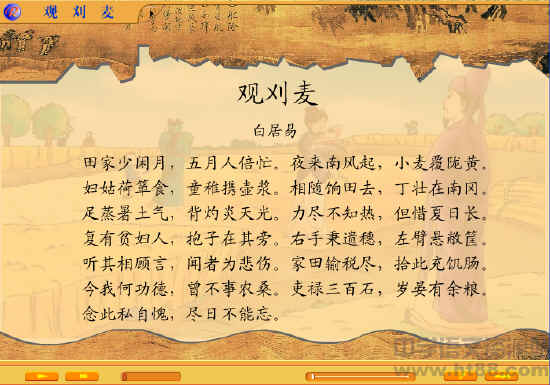 观刈麦
观刈麦
白居易
田家少闲月，五月人倍忙。夜来南风起，小麦覆陇黄。
妇姑荷箪食，童稚携壶浆。相随饷田去，丁壮在南冈。
足蒸署土气，背灼炎天光。力尽不知热，但惜夏日长。
复有贫妇人，抱子在其旁。右手秉遗穗，左臂悬敝筐。
听其相顾言，闻者为悲伤。家田输税尽，拾此充饥肠。
今我何功德，曾不事农桑。吏禄三百石，岁晏有余粮。
念此私自愧，尽日不能忘。
www.ht88.com